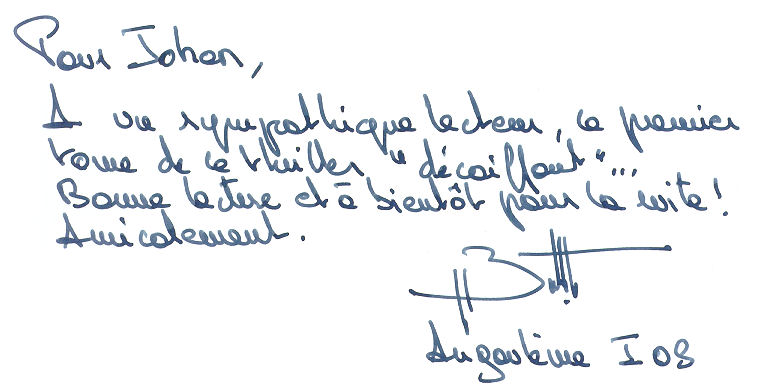 Pour Johan,
A un sympathique lecteur, ce premier
tome de ce thriller "décoiffant"...
Bonne lecture et à bientôt pour la suite !
Amicalement.
Angoulême I 08